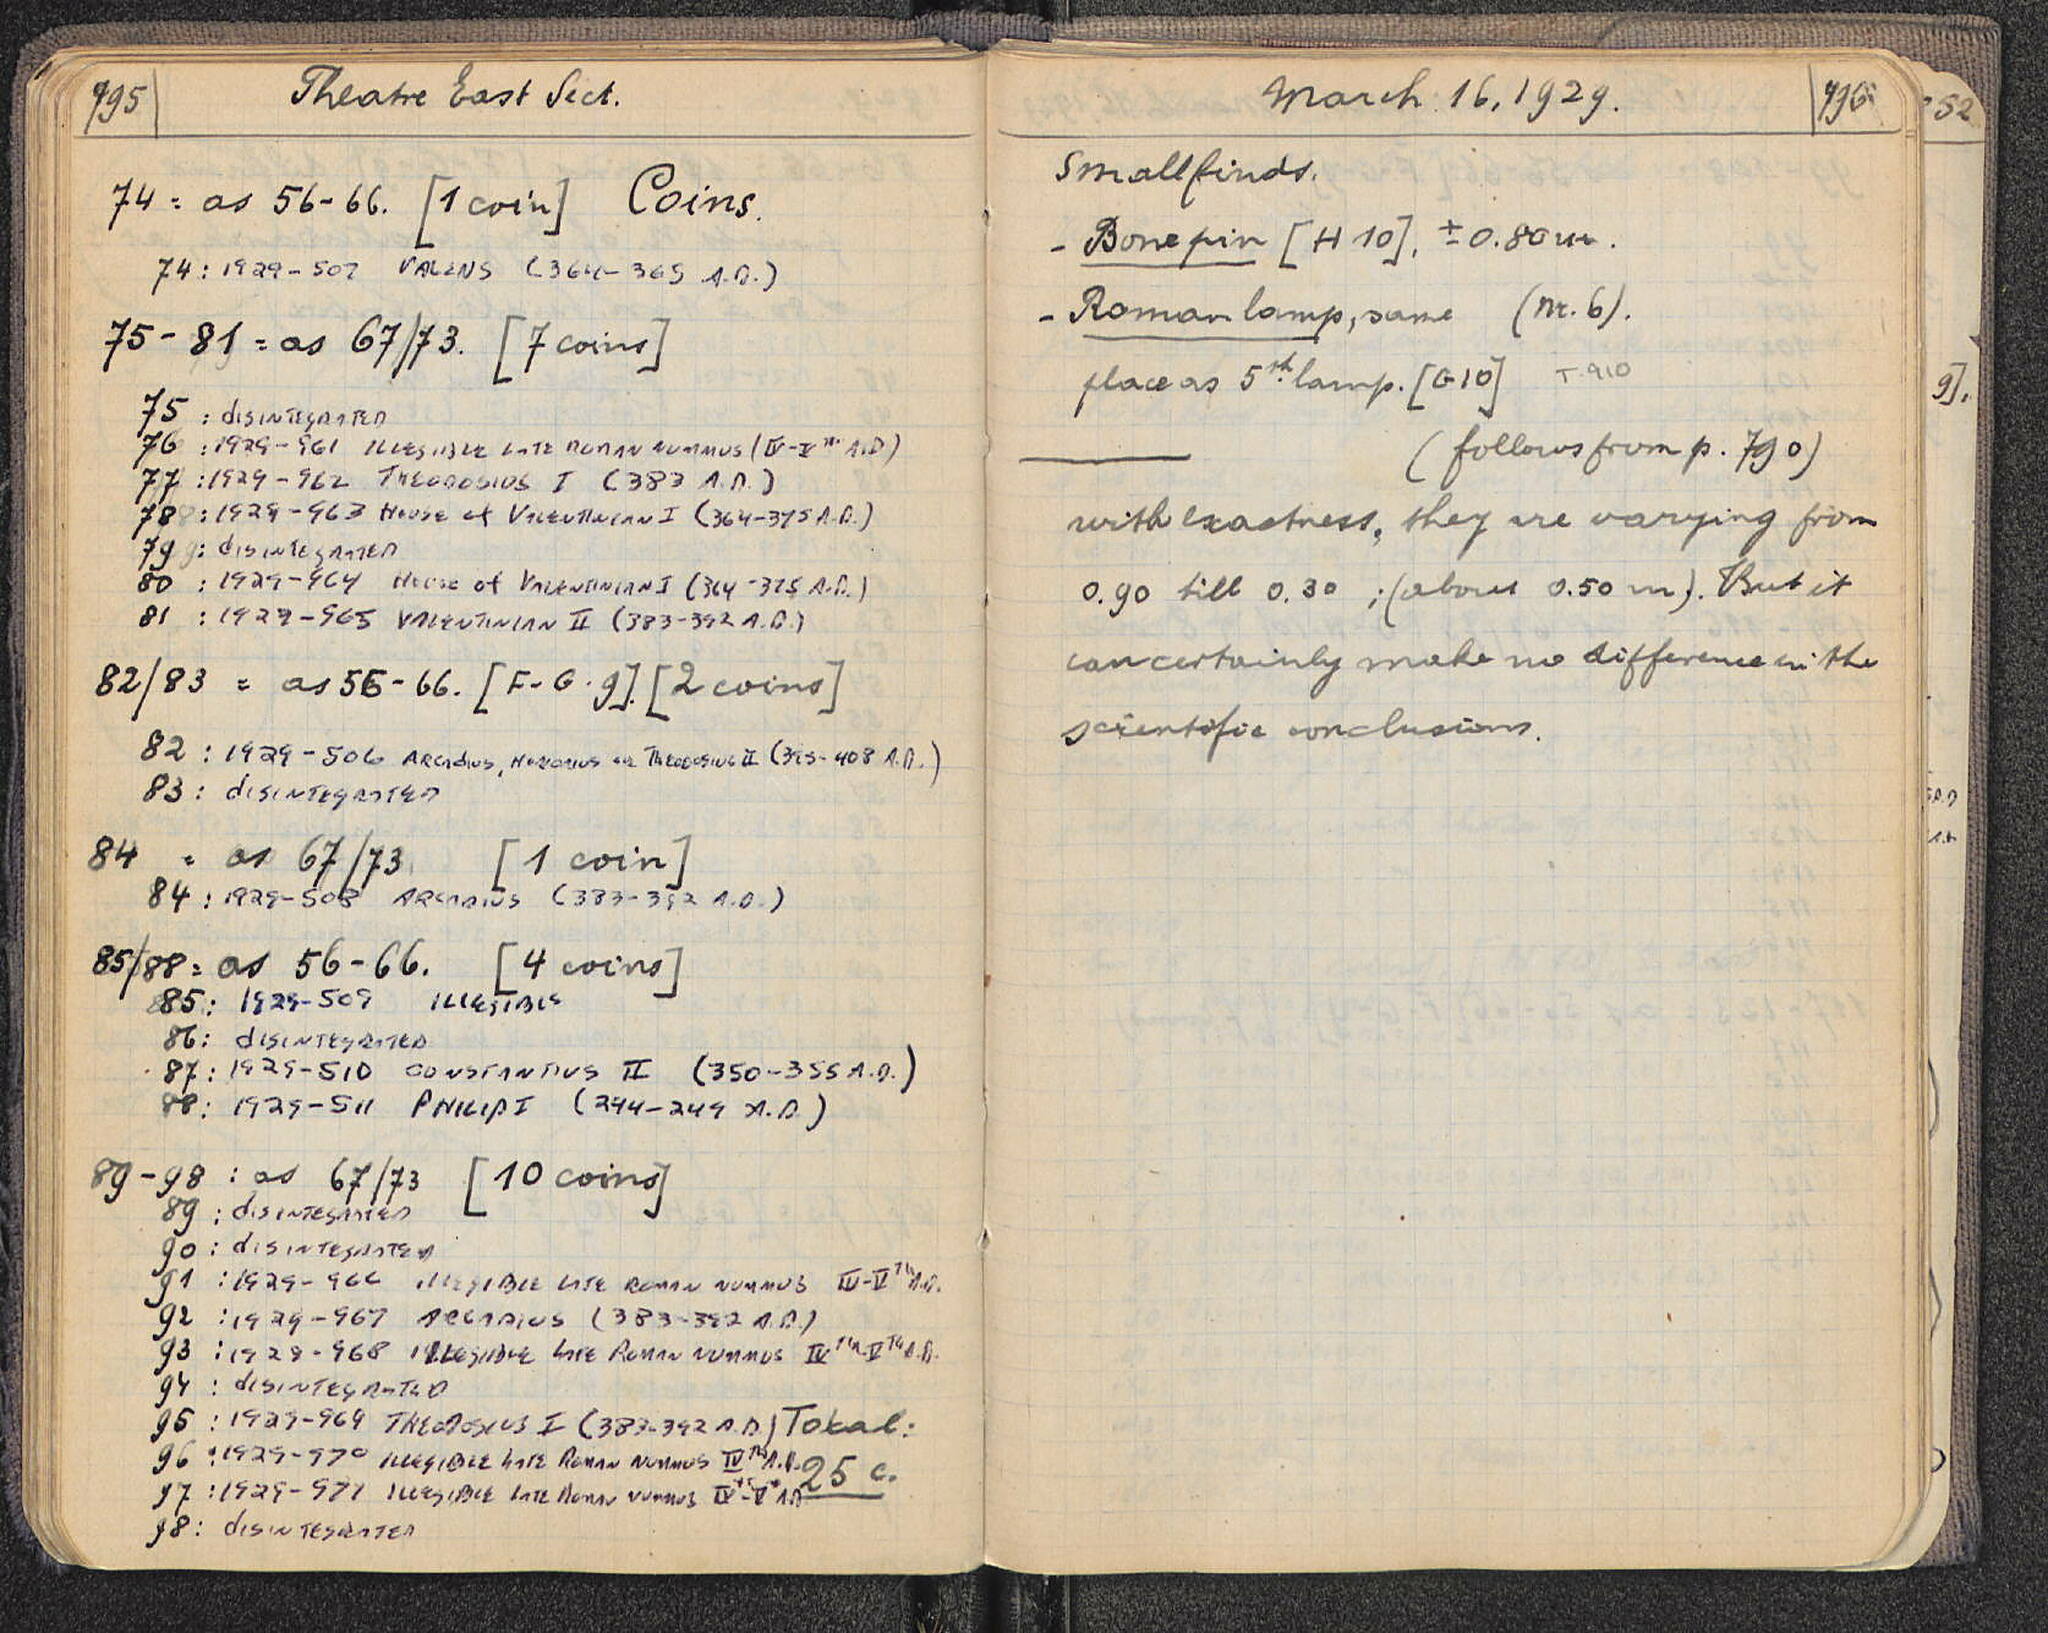 795
Theatre East Sect.
74 = as 56-66. [1 coin] Coins.
74: 1929-507 VALENS (364-365 A.D.)
75-81 = as 67/73. [7 coins]
75 : DISINTEGRATED
76 : 1929-961 ILLEGIBLE LATE ROMAN NUMMUS (IV-V TH A.D)
77 : 1929-962 THEODOSIUS I (383 A.D.)
78 : 1929-963 HOUSE of VALENTINIAN I (364-375 A.D.)
79 : DISINTEGRATED
80 : 1929-964 HOUSE of VALENTINIAN I (364-375 A.D.)
81 : 1929-965 VALENTINIAN II (383-392 A.D.)
82/83 = as 56-66. [F-G.9]. [2 coins]
82 : 1929-506 ARCADIUS, HONORIUS OR THEODOSIUS II (395-408 A.D.)
83 : DISINTEGRATED
84 = as 67/73. [1 coin]
84 : 1929-508 ARCADIUS (383-392 A.D.)
85/88 = as 56-66. [4 coins]
85: 1929-509 ILLEGIBLE
86: DISINTEGRATED
87: 1929-510 CONSTANTIUS II (350-355 A.D.)
88: 1929-511 PHILIP I (244-249 A.D)
89-98 : as 67/73 [10 coins]
89 : DISINTEGRATED
90 : DISINTEGRATED
91 : 1929-966 ILLEGIBLE LATE ROMAN NUMMUS IV-V TH A.D.
92 : 1929-967 ARCADIUS (383-392 A.D.)
93 : 1929-968 ILLEGIBLE LATE ROMAN NUMMUS IV TH-V TH A.D.
94 : DISINTEGRATED
95 : 1929-969 THEODOSIUS I (383-392 A.D.) Total:
96 : 1929-970 ILLEGIBLE LATE ROMAN NUMMUS IV TH A.D. 25 c.
97 : 1929-971 ILLEGIBLE LATE ROMAN NUMMUS IV-V A.D
98 : DISINTEGRATED
March 16, 1929.
796
Smallfinds.
- Bone pin [H 10], ± 0.80 m.
- Roman lamp, same (Nr. 6).
place as 5th. lamp. [G10] T-910
(follows from p. 790)
with exactness, they are varying from
0.90 till 0.30 ; (about 0.50 m). But it
can certainly make no difference in the
scientific conclusions.
52
9].